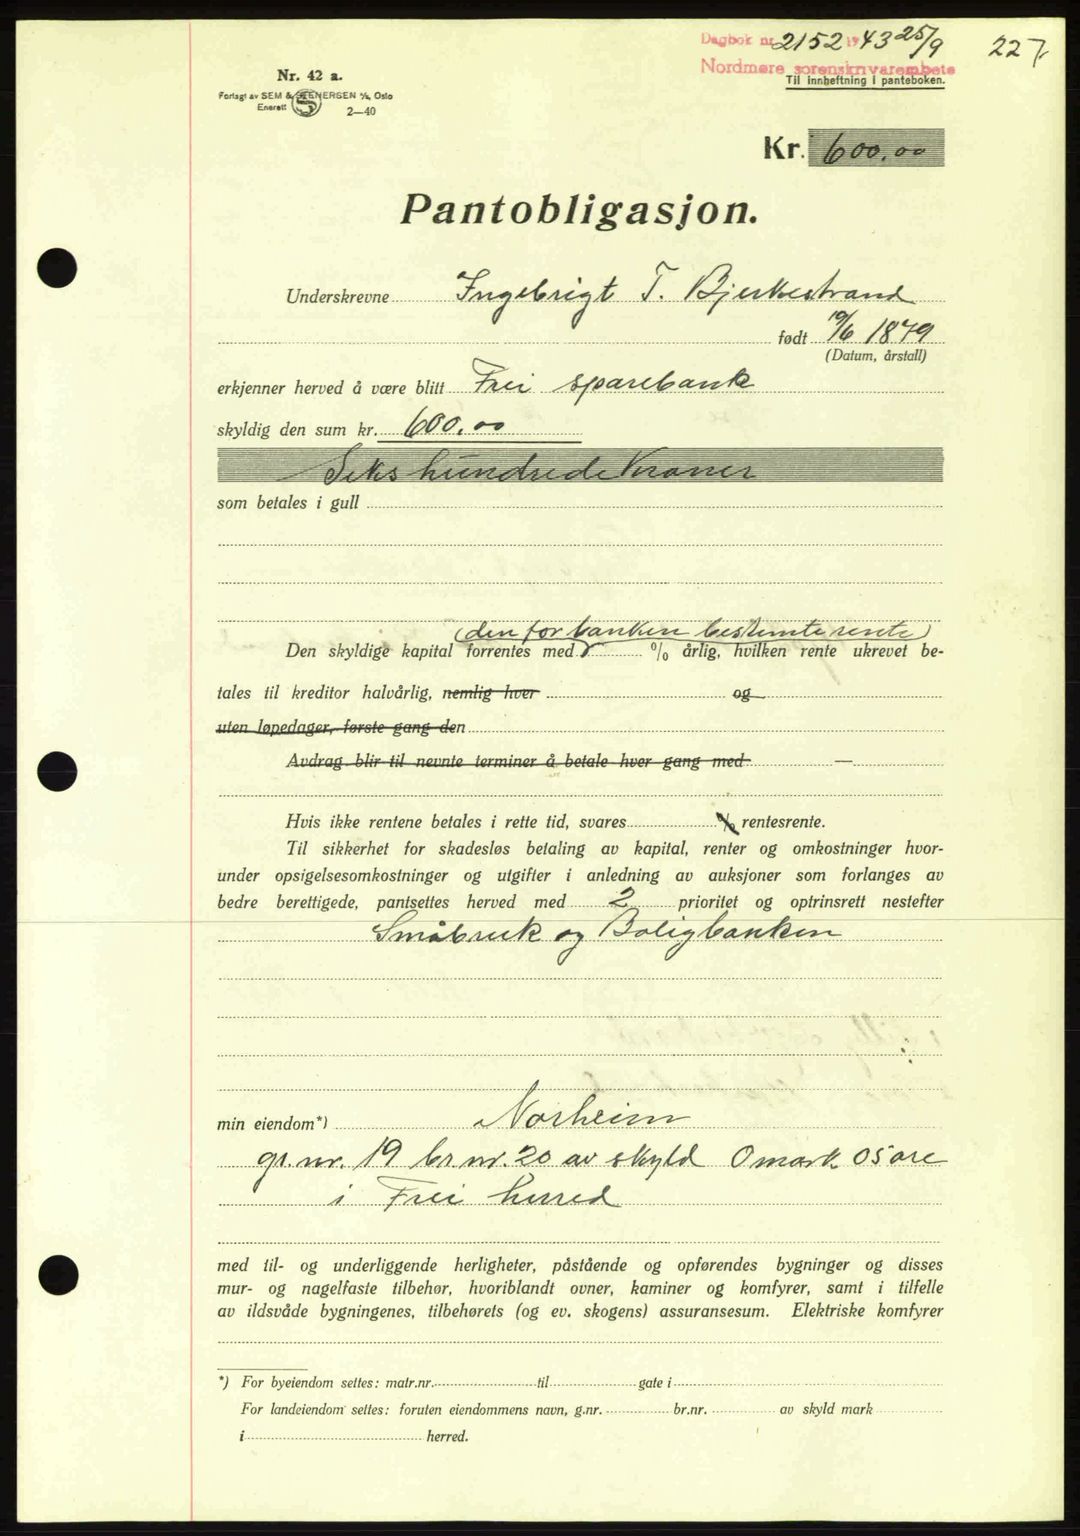 Dagbok nr. 2152 1943 25/9 227.
Nordmøre sorenskrivarembete
Til innheftning i panteboken.
Nr. 42 a.
Forlagt av SEM & STENERSEN A/S, Oslo
Enerett 2—40
Kr. 600.00
Pantobligasjon.
Underskrevne Ingebrigt T. Bjerkestrand
født 19/6 1879
(Datum, årstall)
erkjenner herved å være blitt Frei sparebank
skyldig den sum kr. 600.00
Sekshundrede Kroner
som betales i gull
(den for banken bestemte rente)
Den skyldige kapital forrentes med % årlig, hvilken rente ukrevet be-
tales til kreditor halvårlig, nemlig hver og
uten løpedager, første gang den
Avdrag blir til nevnte terminer å betale hver gang med —
Hvis ikke rentene betales i rette tid, svares % rentesrente.
Til sikkerhet for skadesløs betaling av kapital, renter og omkostninger hvor-
under opsigelsesomkostninger og utgifter i anledning av auksjoner som forlanges av
bedre berettigede, pantsettes herved med 2 prioritet og optrinsrett nestefter
Småbruk og Boligbanken
min eiendom*) Norheim
gr. nr. 19 br. nr. 20 av skyld 0 mark 05 øre
i Frei herred
med til- og underliggende herligheter, påstående og opførendes bygninger og disses
mur- og nagelfaste tilbehør, hvoriblandt ovner, kaminer og komfyrer, samt i tilfelle
av ildsvåde bygningenes, tilbehørets (og ev. skogens) assuransesum. Elektriske komfyrer
*) For byeiendom settes: matr.nr. til gate i
For landeiendom settes: foruten eiendommens navn, g.nr. br.nr. av skyld mark
i herred.